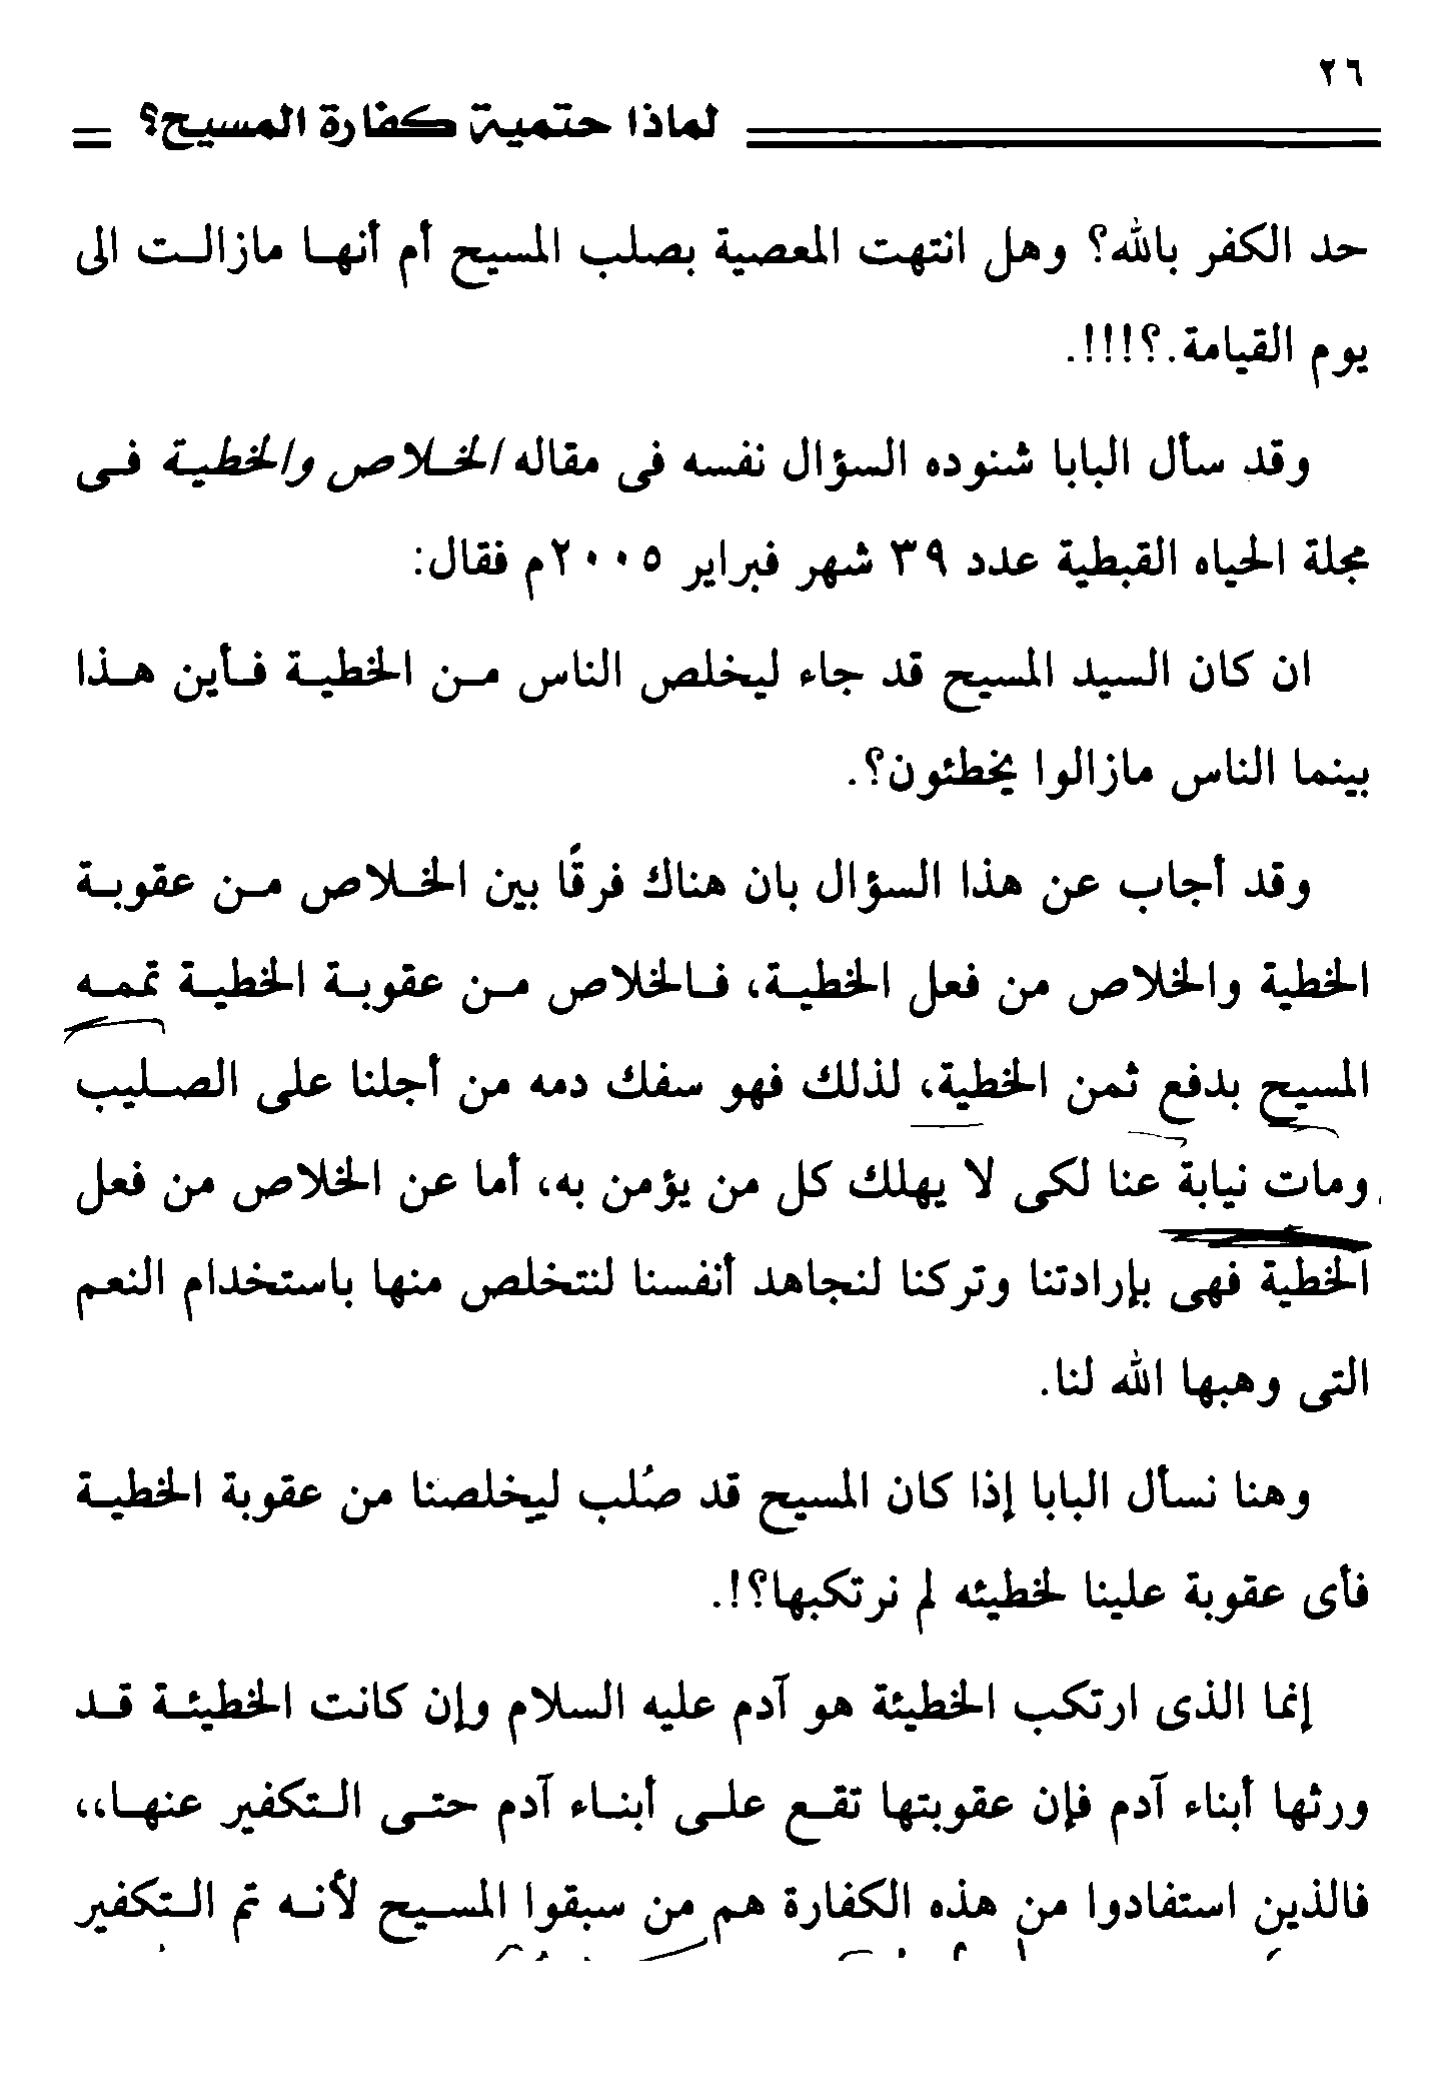 ٢٦
لماذا حتمية كفارة المسيح؟
حد الكفر بالله؟ وهل انتهت المعصية بصلب المسيح أم أنها مازالت الى
يوم القيامة.؟!!!.
وقد سأل البابا شنوده السؤال نفسه فى مقاله الخلاص والخطية فى
مجلة الحياه القبطية عدد ٣٩ شهر فبراير ٢٠٠٥م فقال:
ان كان السيد المسيح قد جاء ليخلص الناس من الخطية فأين هذا
بينما الناس مازالوا يخطئون؟.
وقد أجاب عن هذا السؤال بان هناك فرقًا بين الخلاص من عقوبة
الخطية والخلاص من فعل الخطية، فالخلاص من عقوبة الخطية تممه
المسيح بدفع ثمن الخطية، لذلك فهو سفك دمه من أجلنا على الصليب
ومات نيابة عنا لكى لا يهلك كل من يؤمن به، أما عن الخلاص من فعل
الخطية فهى بإرادتنا وتركنا لنجاهد أنفسنا لنتخلص منها باستخدام النعم
التى وهبها الله لنا.
وهنا نسأل البابا إذا كان المسيح قد صُلب ليخلصنا من عقوبة الخطية
فأى عقوبة علينا لخطيئه لم نرتكبها؟!.
إنما الذى ارتكب الخطيئة هو آدم عليه السلام وإن كانت الخطيئة قد
ورثها أبناء آدم فإن عقوبتها تقع على أبناء آدم حتى التكفير عنها،،
فالذين استفادوا من هذه الكفارة هم من سبقوا المسيح لأنه تم التكفير